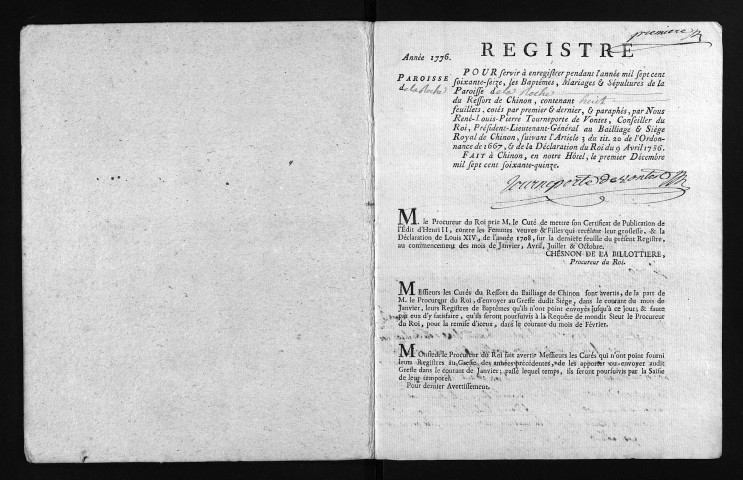 premiere
Année 1776.
REGISTRE
PAROISSE
de la Roche
POUR servir à enregistrer pendant l'année mil sept cent
soixante-seize, les Baptêmes, Mariages & Sépultures de la
Paroisse de la Roche
du Ressort de Chinon, contenant huit
feuillets, cotés par premier & dernier, & paraphés, par Nous
René-Louis-Pierre Tourneporte de Vontes, Conseiller du
Roi, Président-Lieutenant-Général au Bailliage & Siége
Royal de Chinon, suivant l'Article 3 du tit. 20 de l'Ordon-
nance de 1667, & de la Déclaration du Roi du 9 Avril 1736.
FAIT à Chinon, en notre Hôtel, le premier Décembre
mil sept cent soixante-quinze.
Tourneporte de vontes
M. le Procureur du Roi prie M. le Curé de mettre son Certificat de Publication de
l'Édit d'Henri II, contre les Femmes veuves & Filles qui recélent leur grossesse, & la
Déclaration de Louis XIV, de l'année 1708, sur la derniere feuille du présent Registre,
au commencement des mois de Janvier, Avril, Juillet & Octobre.
CHESNON DE LA BILLOTTIERE,
Procureur du Roi.
MEssieurs les Curés du Ressort du Bailliage de Chinon sont avertis, de la part de
M. le Procureur du Roi, d'envoyer au Greffe dudit Siége, dans le courant du mois de
Janvier, leurs Registres de Baptêmes qu'ils n'ont point envoyés jusqu'à ce jour; & faute
par eux d'y satisfaire, qu'ils seront poursuivis à la Requête de mondit Sieur le Procureur
du Roi, pour la remise d'iceux, dans le courant du mois de Février.
MOnsieur le Procureur du Roi fait avertir Messieurs les Curés qui n'ont point fourni
leurs Registres au Greffe des années précédentes, de les apporter ou envoyer audit
Greffe dans le courant de Janvier; passé lequel temps, ils seront poursuivis par la Saisie
de leur temporel.
Pour dernier Avertissement.